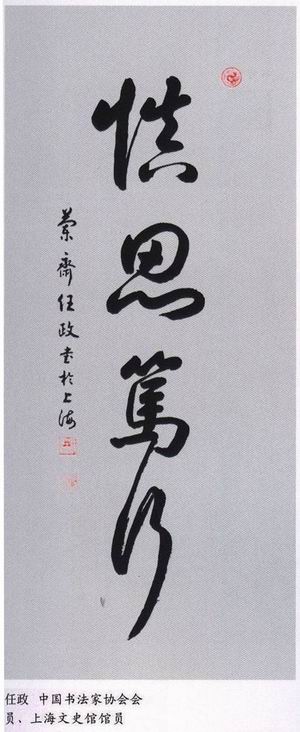 慎思篤行
蘭齋任政书於上海
任政 中国书法家协会会
员、上海文史馆馆员